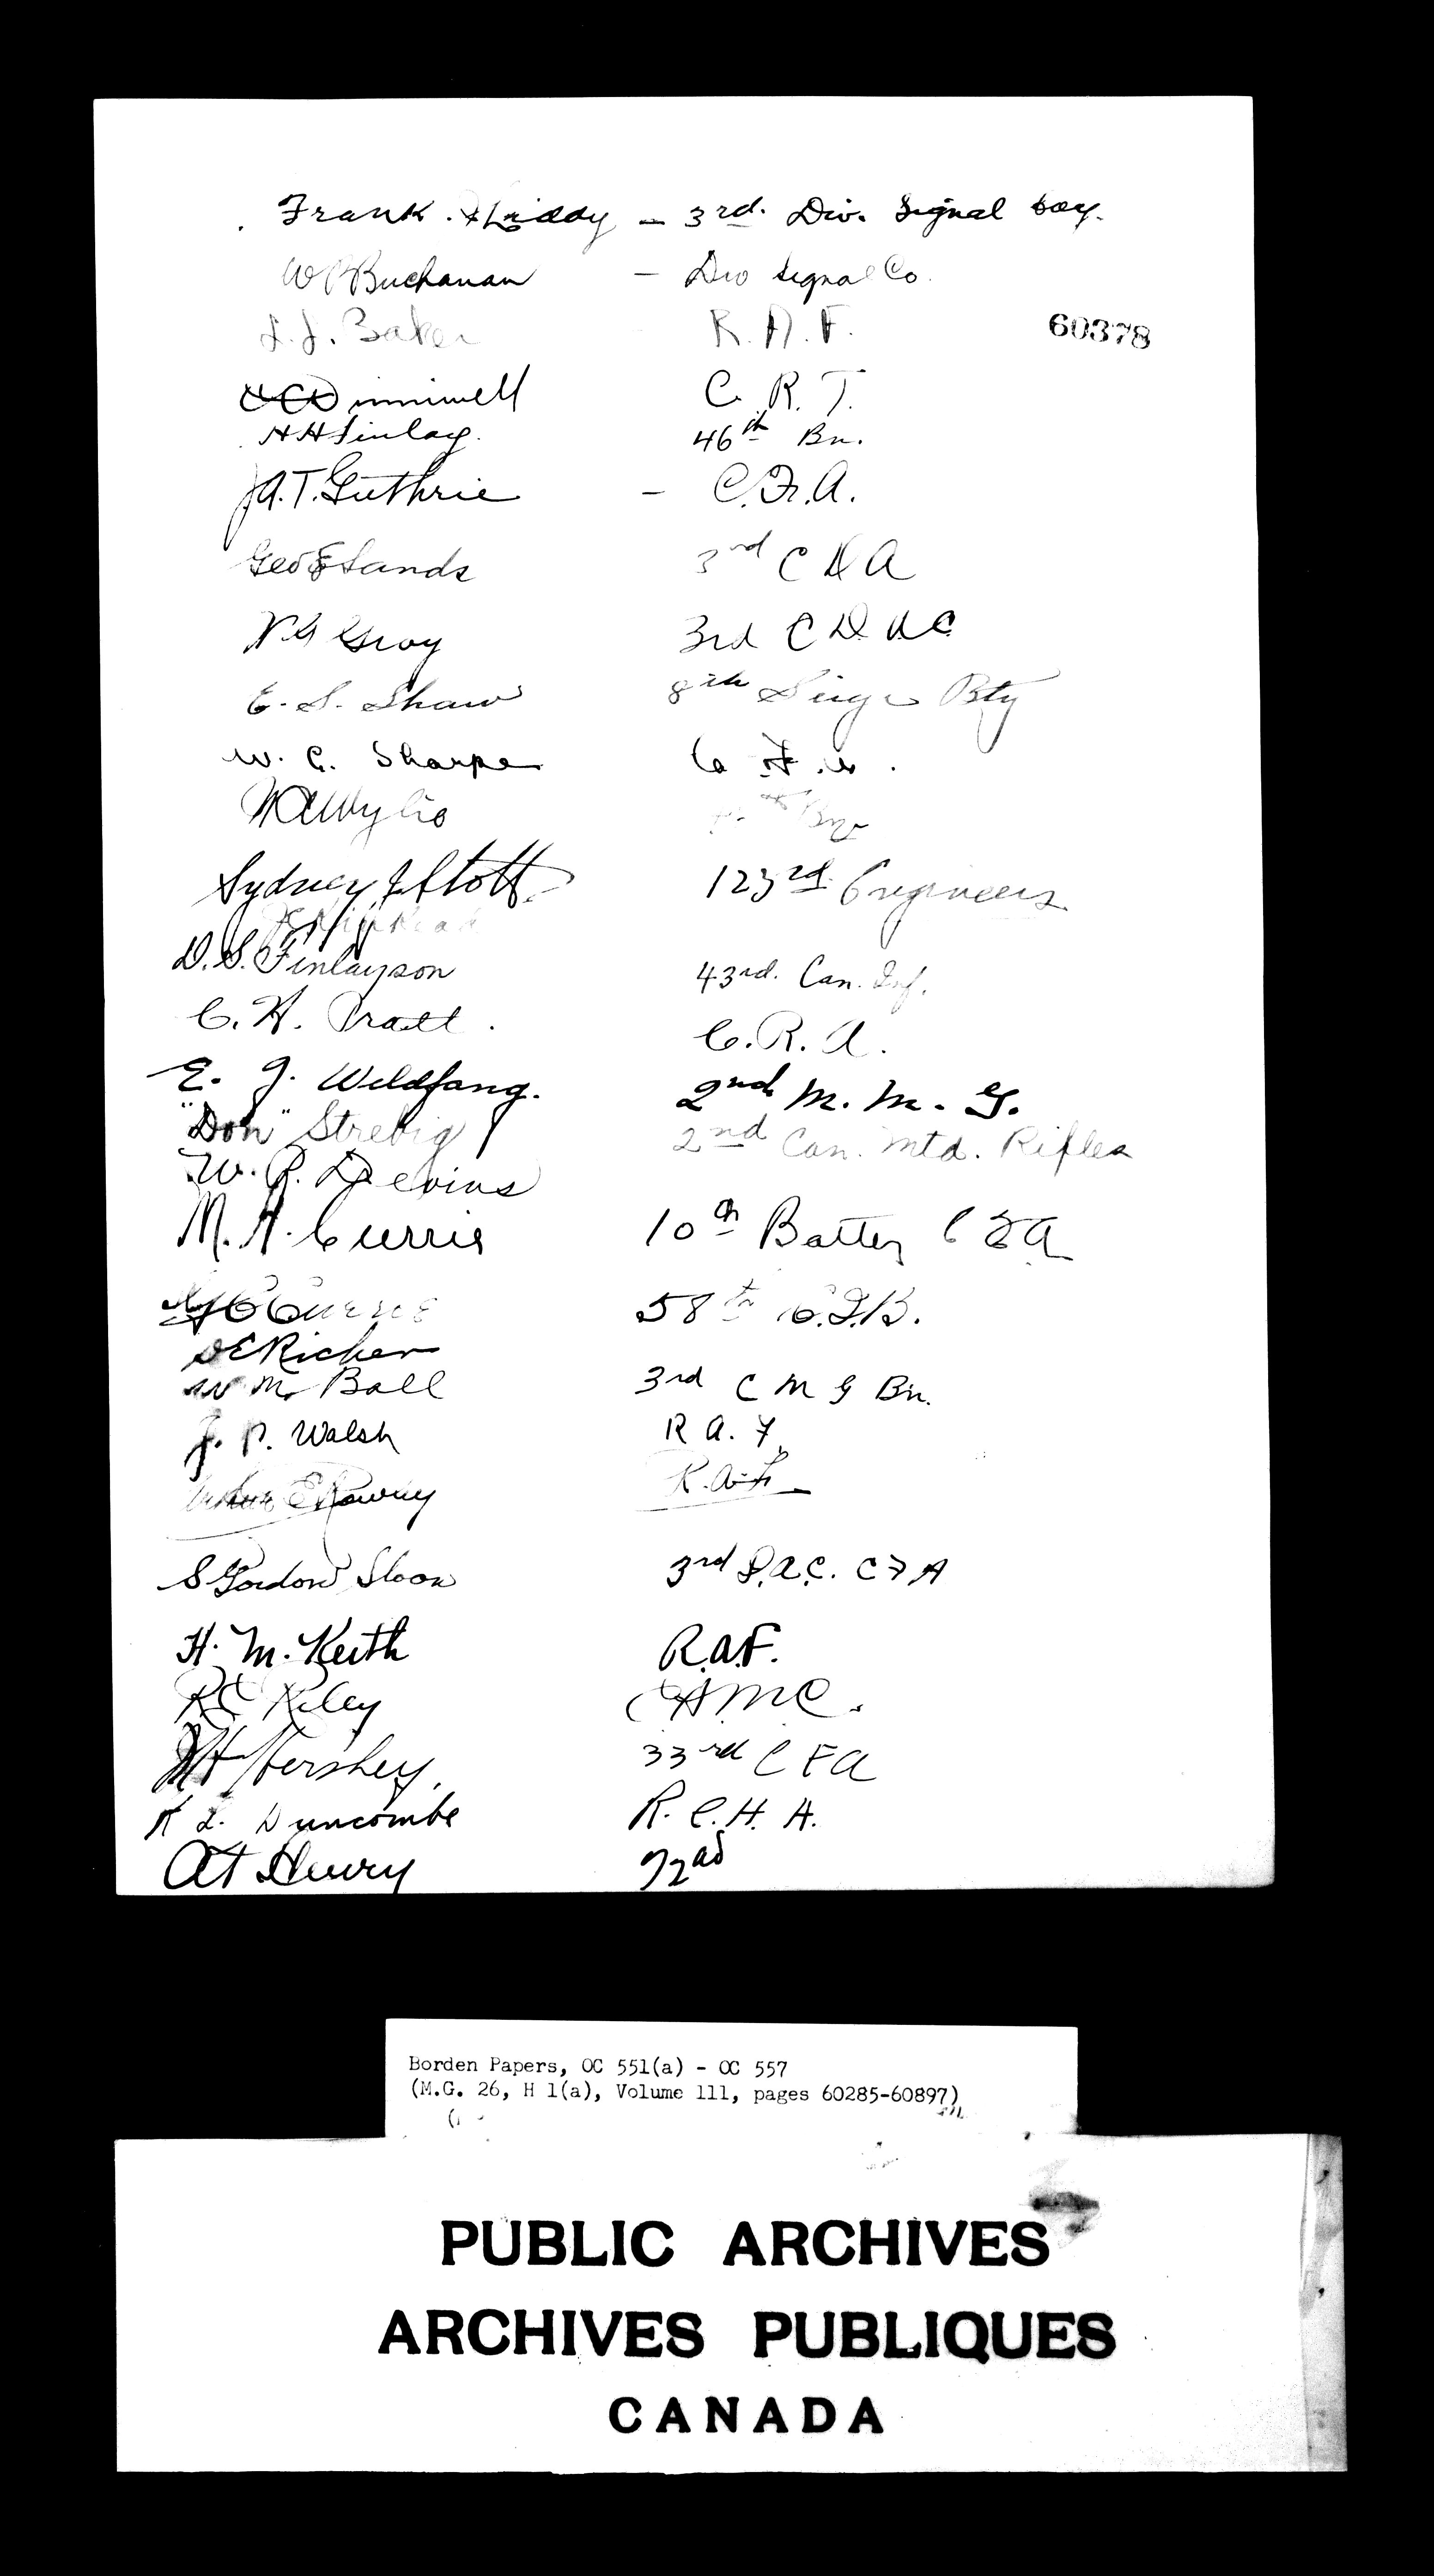 Frank Liddy - 3rd. Div. Signal Coy.
W P Buchanan - Div Signal Co.
J. J. Baker R. A. F.
60378
C. R. T.
H H Finlay. 46th Bn.
J.A.T. Guthrie - C.F.A.
Geo E Sands 3rd C D A
Gray 3rd C D A C
E. S. Shaw 8th Siege Bty
W. C. Sharpe
Wylie Bn
Sydney J Stott 123rd Engineers
D.S. Finlayson 43rd. Can. Inf.
C. H. Pratt. C.R.A.
E. J. Wildfang. 2nd M. M. G.
"Don" Strebig 2nd Can. Mtd. Rifles
W. R. Devins
M. A. Currie 10th Battery C F A
58th C.I.B.
Richer
W M Ball 3rd C M G Bn.
J. P. Walsh R A. F.
Arthur E Rowley R.A.F.
S Gordon Sloan 3rd D.A.C. C F A
H. M. Keith R.A.F.
R C Riley C A M C.
H Hershey. 33rd C F A
K L. Duncombe R. C. H. A.
A T Henry 72nd
Borden Papers, OC 551(a) - OC 557
(M.G. 26, H 1(a), Volume 111, pages 60285-60897)
PUBLIC ARCHIVES
ARCHIVES PUBLIQUES
CANADA